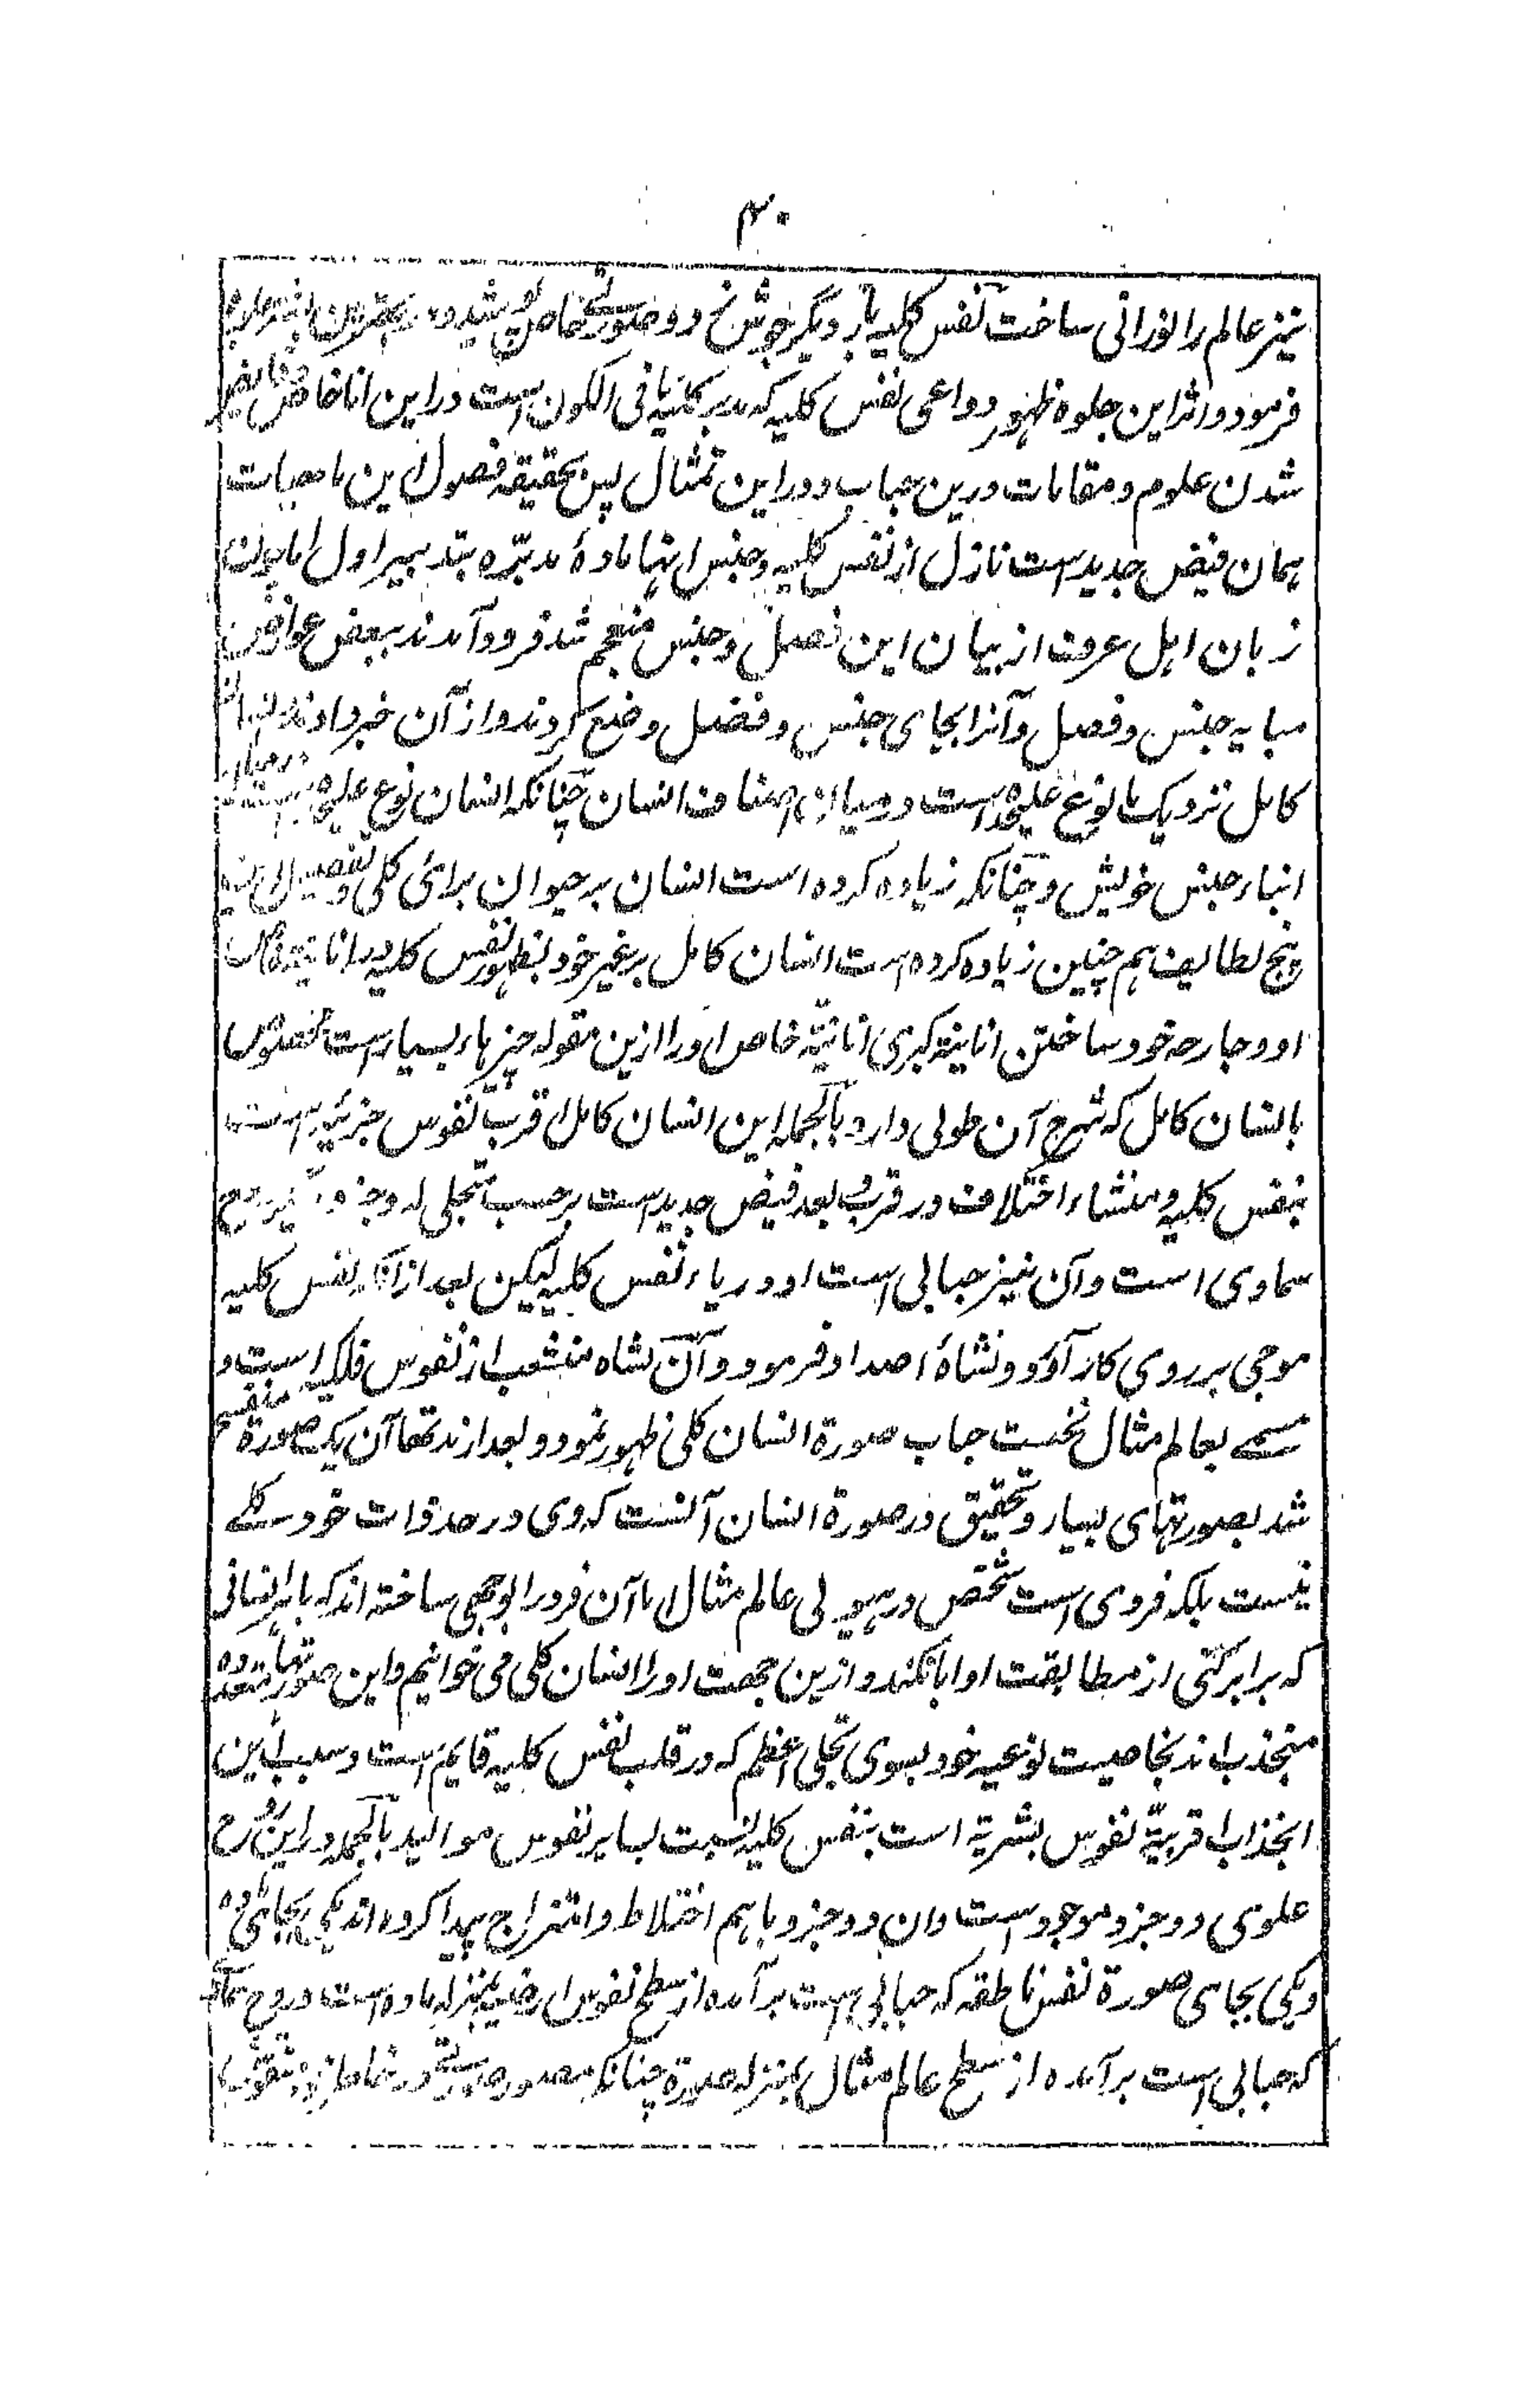 ۴۰
نیز عالم را نورانی ساخت نفس کلیه بار دیگر جوش زد و صورتی خاص پوشیده
فرمود و اثر این جلوه ظهور دواعی نفس کلیه که مدبر کلیه ما فی الکون است در این انا خاص و فایض
شدن علوم و مقامات درین حباب و در این تمثال پس بحقیقه فصول این ماهیات
همان فیض جدیدست نازل از نفس کلیه و جنس اینها مادهٔ مدبّره بتدبیر اول اما چون
زبان اهل عرف از بیان این فصل و جنس منعجم شد فرود آمدند ببعض عوارض
مبایه جنس و فصل و آنرا بجای جنس و فصل وضع کردند و از آن خبر دادند انسان
کامل نزدیک ما نوع علیحده است در میان اصناف انسان چنانکه انسان نوع علیحده است در میان
ابناء جنس خویش و چنانکه زیاده کرده است انسان بر حیوان برای کلی و تفصیل این
پنج لطایف هم چنین زیاده کرده است انسان کامل بر غیر خود بظهور نفس کلیه در انانیته خاص
او و جارحه خود ساختن انانیة کبری انانیّة خاص او را ازین مقوله چیزهاء بسیارست مخصوص
بانسان کامل که شرح آن طولی دارد بالجمله این انسان کامل اقرب نفوس جزئیه است
بنفس کلیه و منشاء اختلاف در قرب و بعد فیض جدیدست برحسب تجلی له و جزو دیگر روح
سماوی است و آن نیز حبابی است از دریاء نفس کلیه لیکن بعد از آنکه نفس کلیه
موجی بر روی کار آورد و نشاهٔ اصدا و فرمود و آن نشاه منشعب از نفوس فلکیه است و
مسمے بعالم مثال نخست حباب صورة انسان کلی ظهور نمود و بعد از مدتها آن یک صورة منقسم
شد بصورتهای بسیار و تحقیق در صورة انسان آنست که وی در حد ذات خود کلے
نیست بلکه فردی است شخص در هیولی عالم مثال اما آن فرد را بوجهی ساخته اند که با هر انسانی
که برابر کنی از مطابقت او ابا نکند و ازین جهت او را انسان کلی می خوانیم و این صورتها متعدده
منجذب اند بخاصیت نوعیه خود بسوی تجلی اعظم که در قلب نفس کلیه قایم است و سبب این
انجذاب اقربیّة نفوس بشریة است بنفس کلیه نسبت بسایر نفوس موالید بالجمله در این روح
علوی دو جزو موجودست و ان دو جزو باهم اختلاط و امتزاج پیدا کرده اند یکی بجای ماده
و یکی بجای صورة نفس ناطقه که حبابی است برآمده از سطح نفوس ارضیه بمنزله ماده است و روح سماوی
که حبابی است برآمده از سطح عالم مثال بمنزله صورة چنانکه مصور صورتی در خاطر